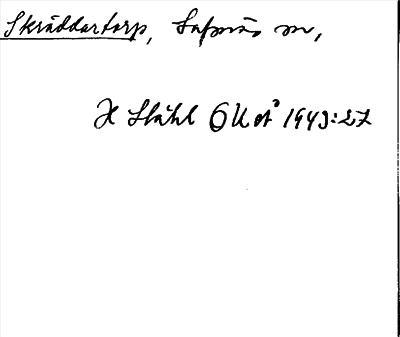 Skräddartorp, Safsnäs sn,
H Ståhl ÖKoÅ 1943:27